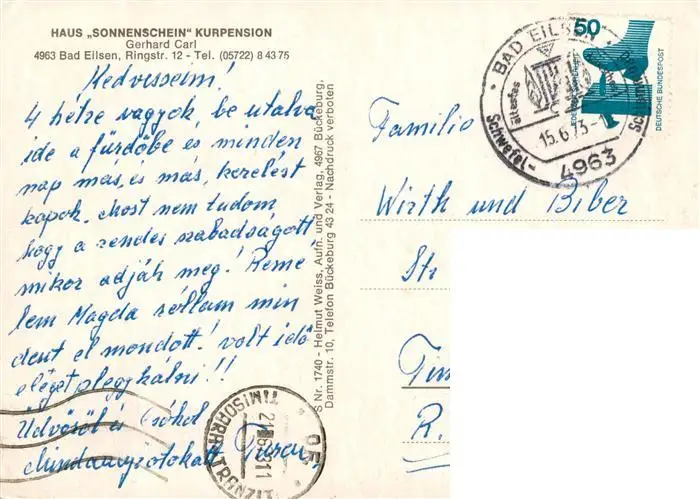 HAUS „SONNENSCHEIN" KURPENSION
Gerhard Carl
4963 Bad Eilsen, Ringstr. 12 - Tel. (05722) 8 43 75
Kedvesseim!
4 hétre vagyok, be utalva
ide a fürdőbe és minden
nap más, és más, kezelést
kapok. Most nem tudom
hogy a rendes szabadságott
mikor adják meg! Reme
lem Magda rollam min
dent el mondott! volt idő
eléget plegykálni!!
Üdvözöl és csókol
Mindannyiotokatt
S Nr. 1740 - Helmut Weiss, Aufn. und Verlag, 4967 Bückeburg,
Dammstr. 10, Telefon Bückeburg 43 24 - Nachdruck verboten
BAD EILSEN
ältestes
Schwefel-
15.6.73-
4963
50
DEUTSCHE BUNDESPOST
Familie
Wirth und Biber
Str
R.
TIMISOARA TRANZIT
OF.